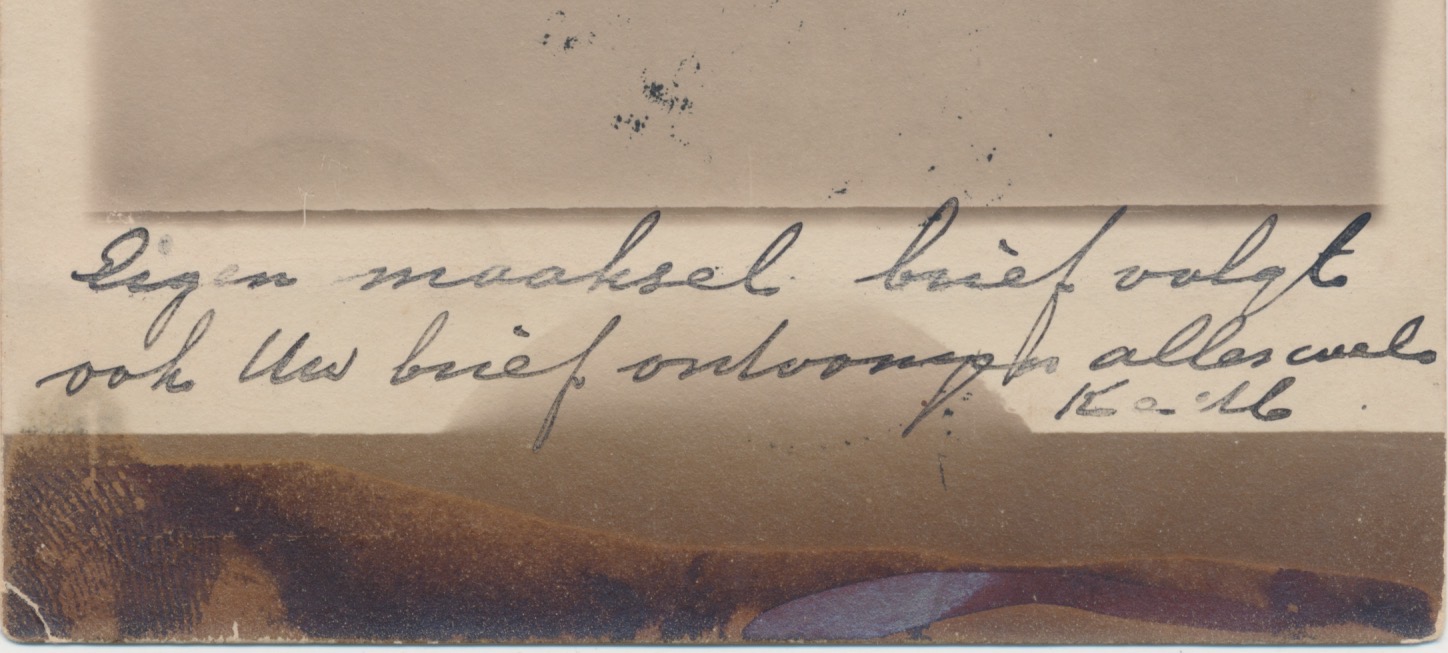 Eigen maaksel brief volgt
ook Uw brief ontvangen alles wel